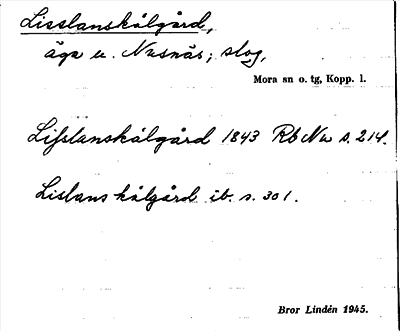 Lisslanskålgård,
äga u. Nusnäs; skog,
Mora sn o. tg, Kopp. l.
Lisslanskålgård 1843 Rb Nu s. 214.
Lislans kålgård ib. s. 301.
Bror Lindén 1945.